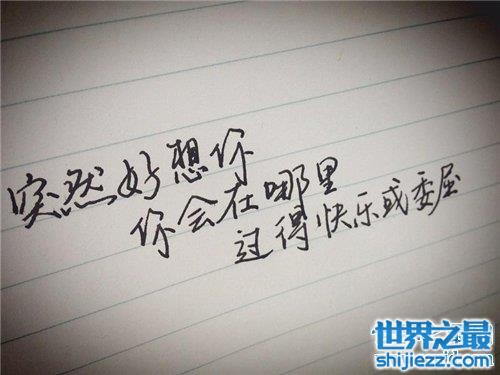 突然好想你
你会在哪里
过得快乐或委屈
世界之最
shijiezzi.com